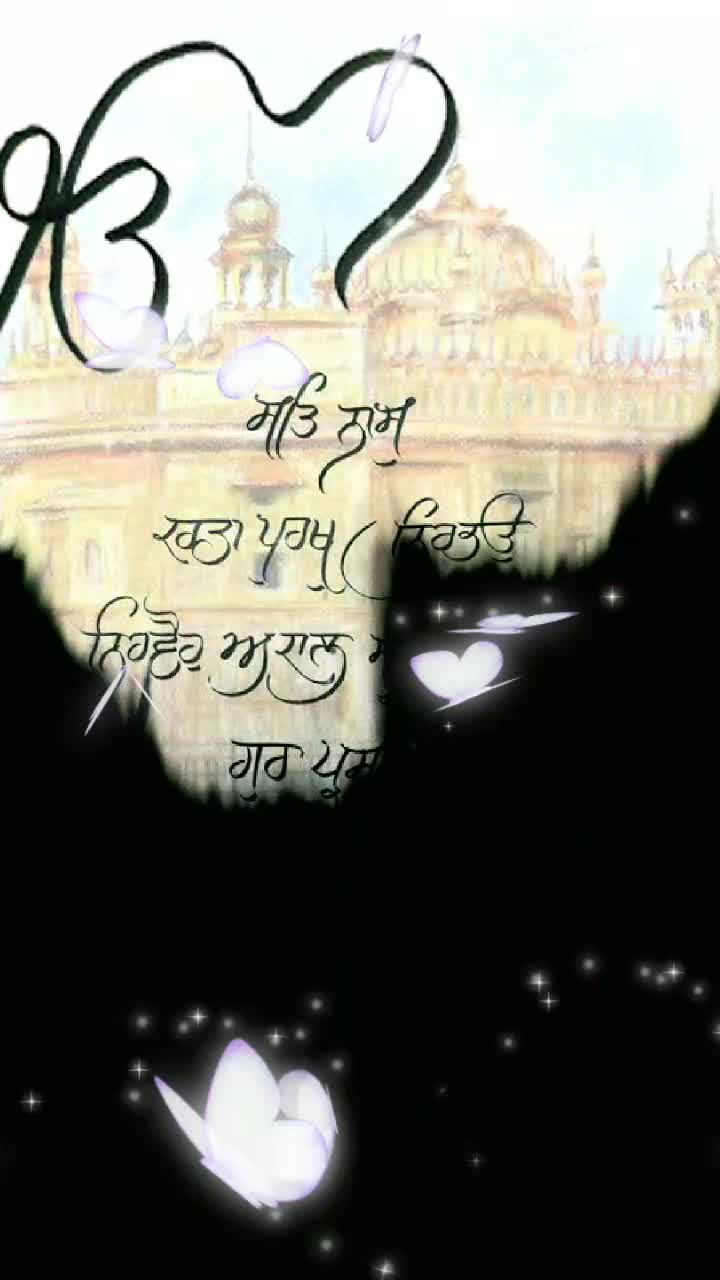 ੴ
ਸਤਿ ਨਾਮੁ
ਕਰਤਾ ਪੁਰਖੁ ਨਿਰਭਉ
ਨਿਰਵੈਰੁ ਅਕਾਲ
ਗੁਰ